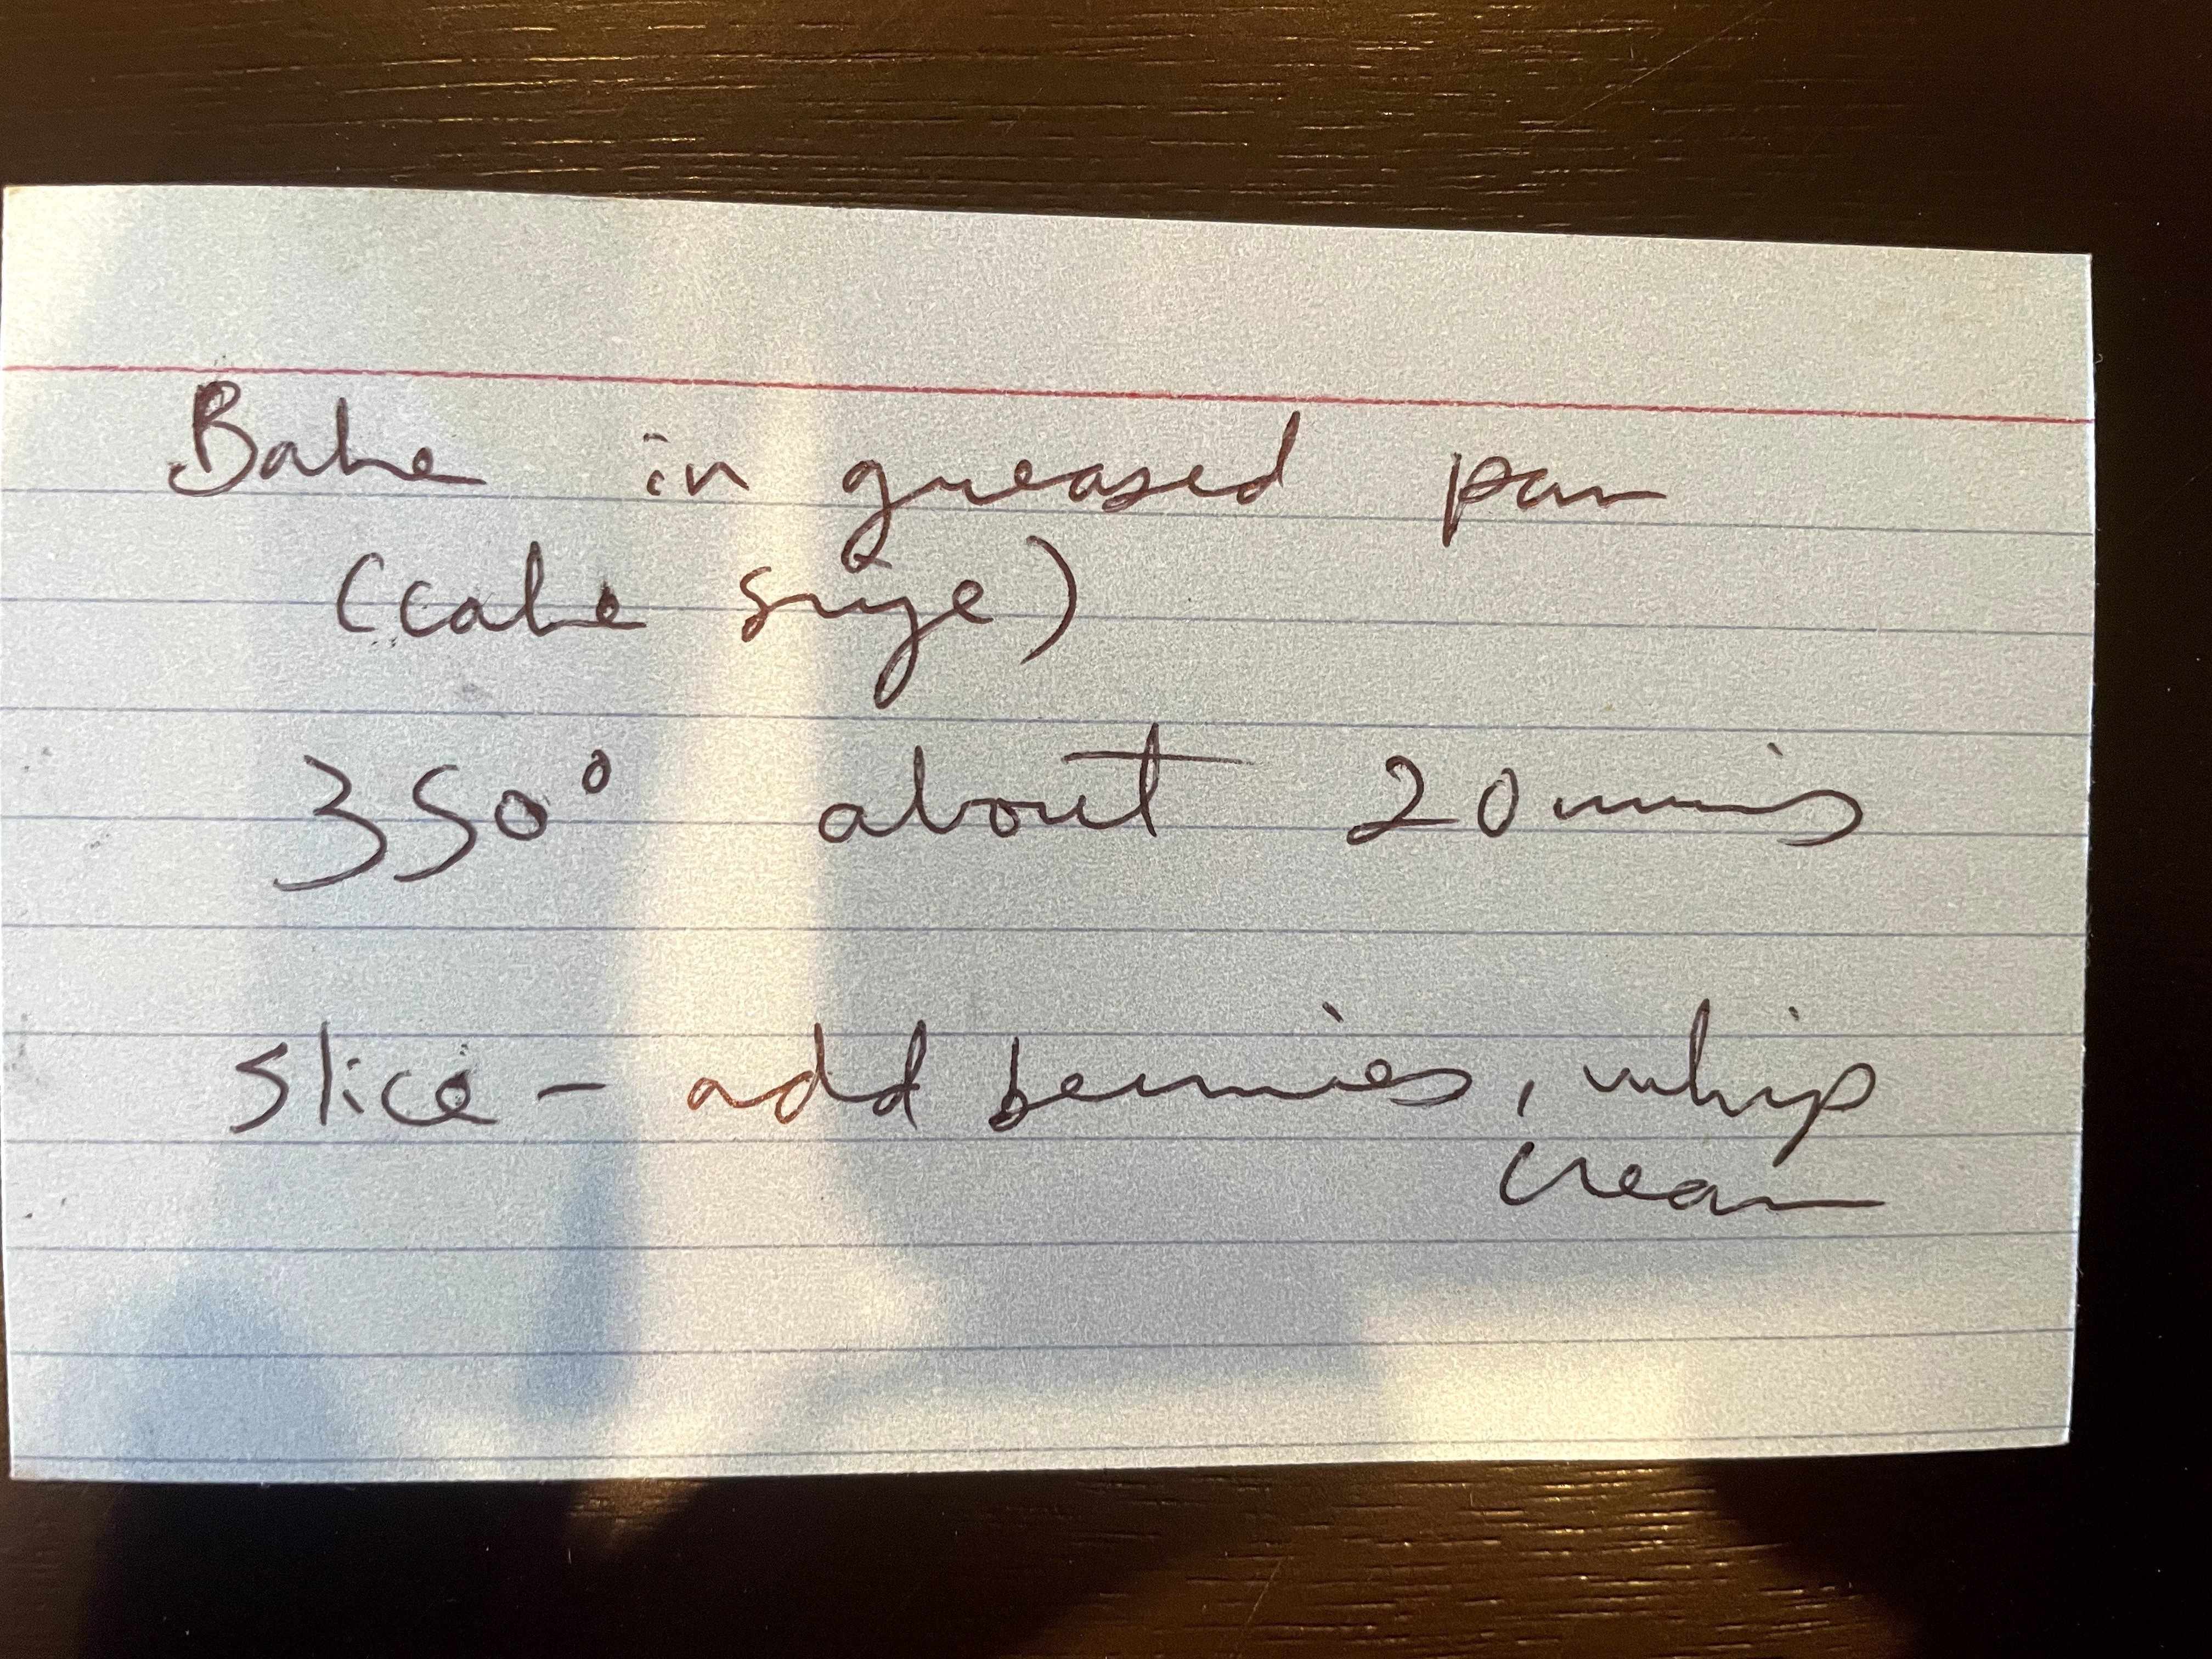 Bake in greased pan
(cake size)
350° about 20 mins
slice - add berries, whip
cream